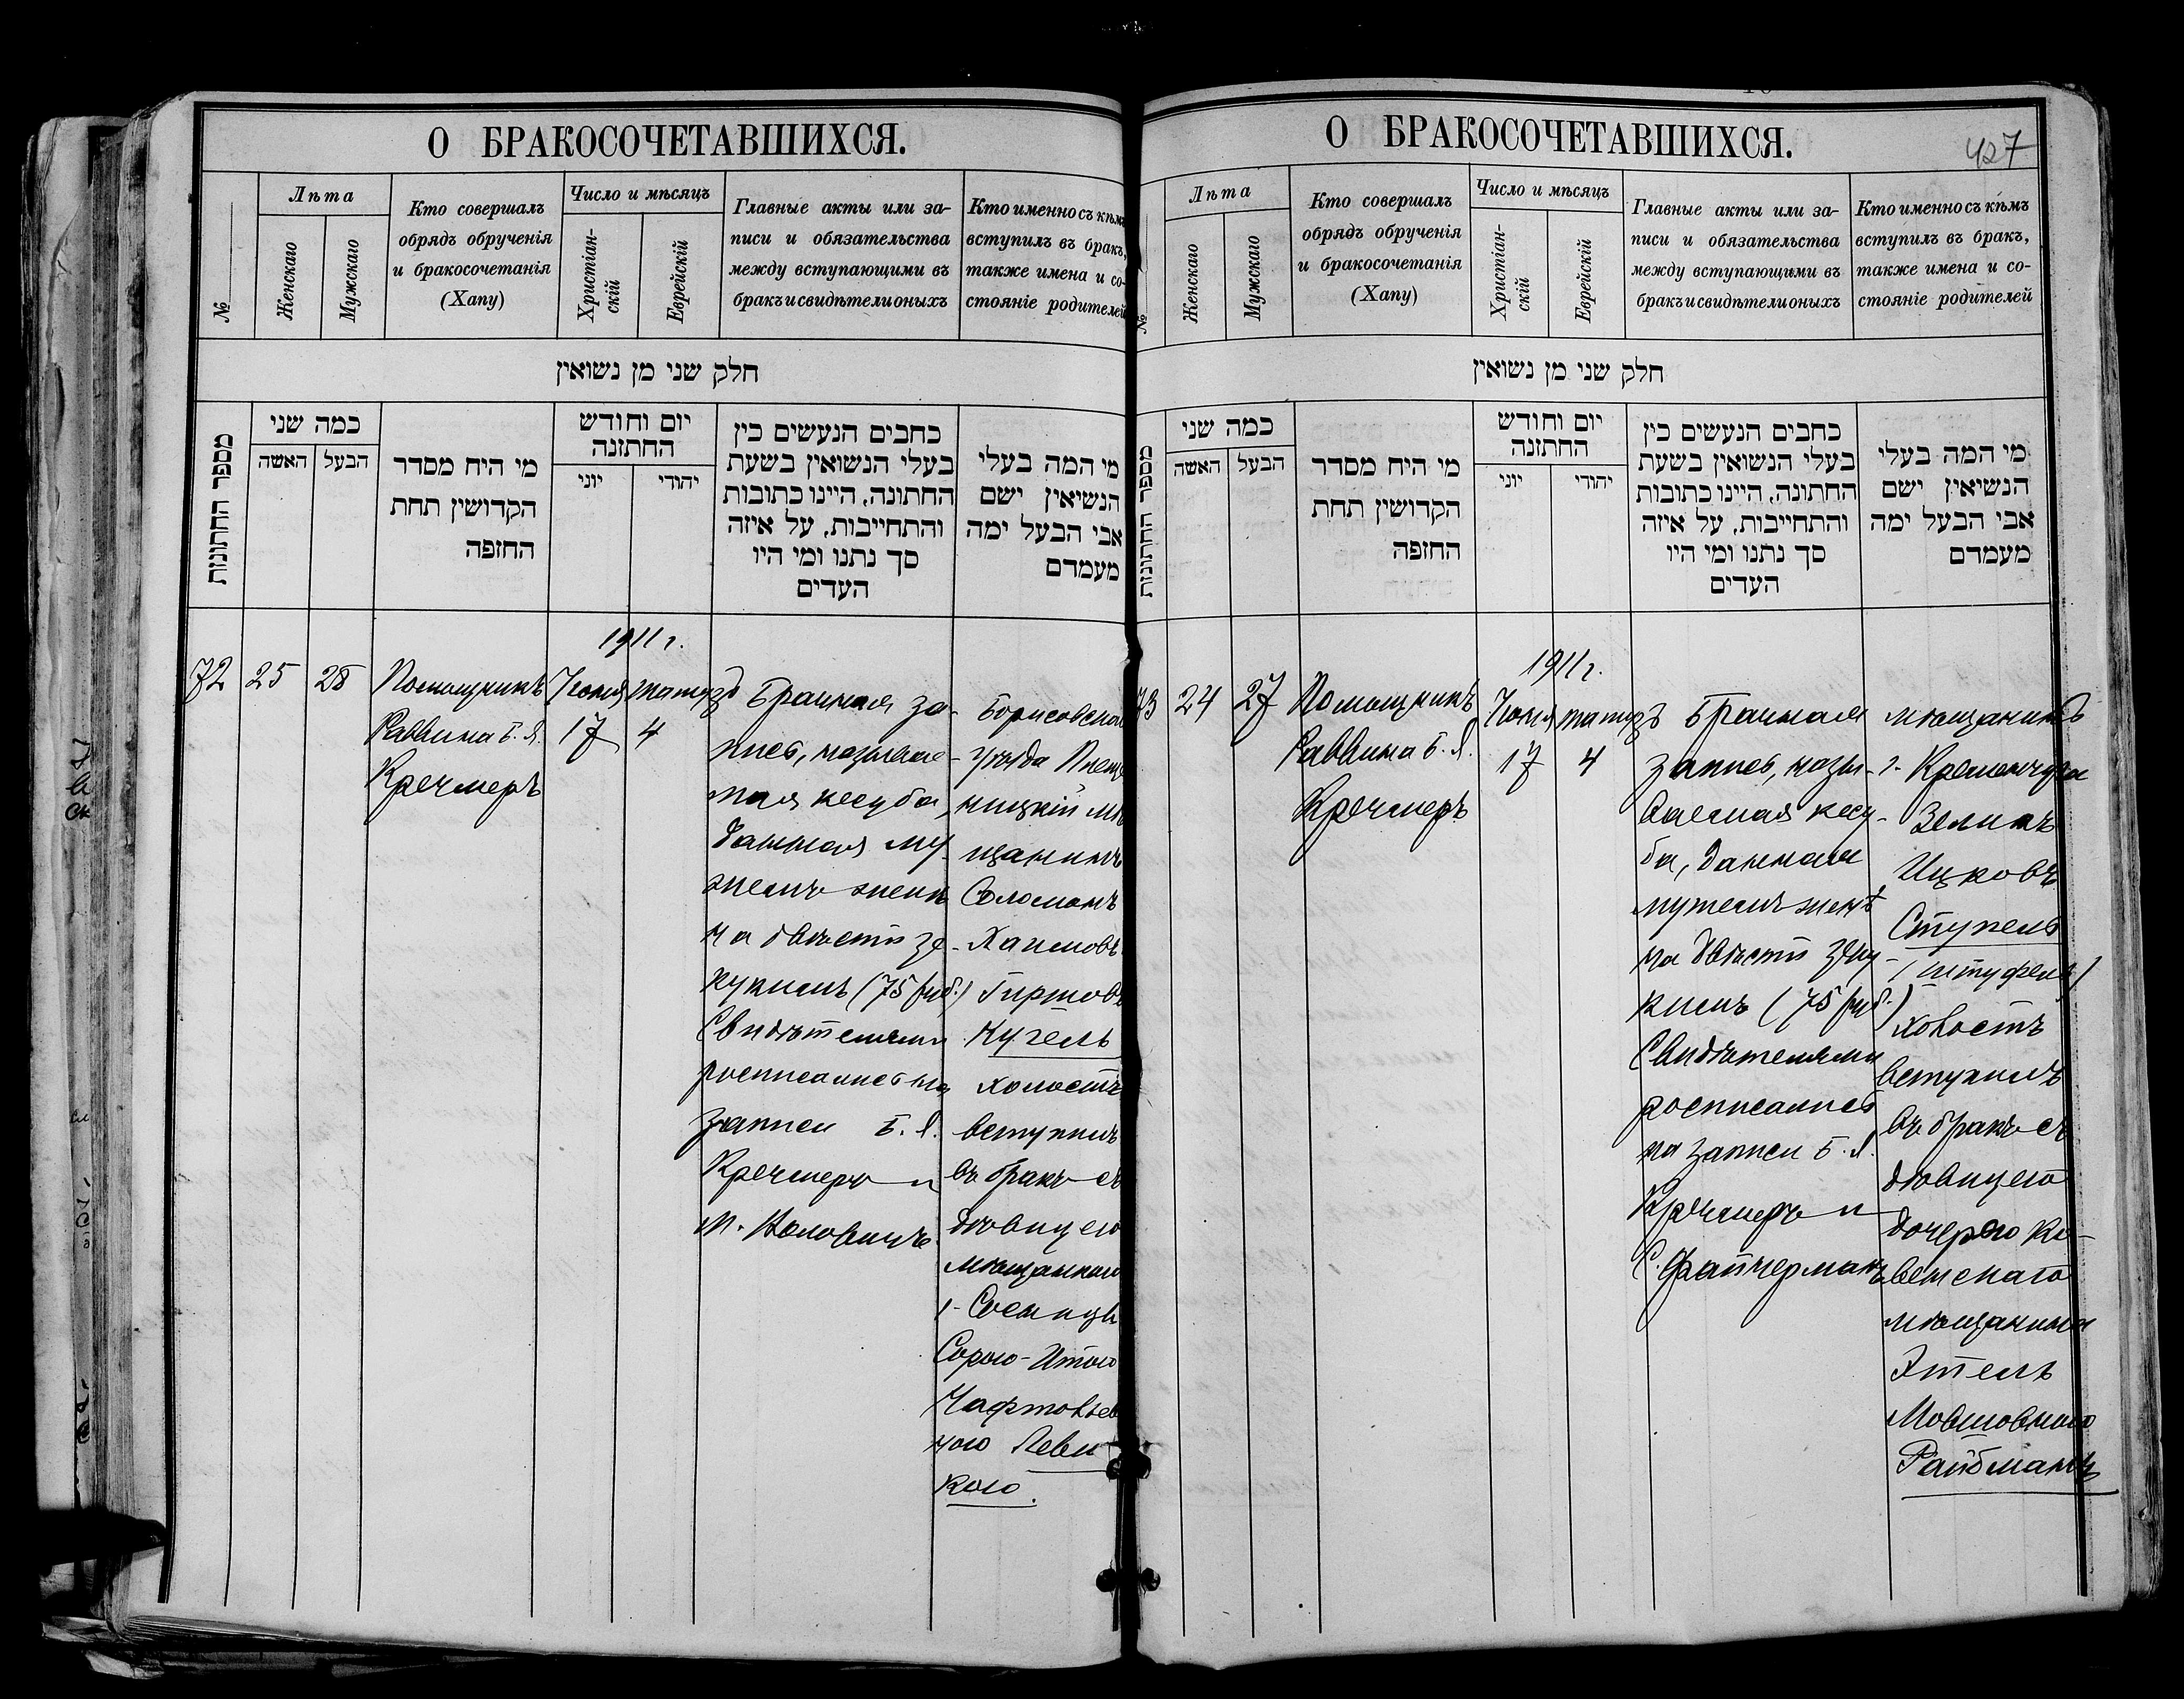 О БРАКОСОЧЕТАВШИХСЯ.
№
Лѣта
Женскаго
Мужскаго
Кто совершалъ
обрядъ обрученія
и бракосочетанія
(Хапу)
Число и мѣсяцъ
Христіан-
скій
Еврейскій
Главные акты или за-
писи и обязательства
между вступающими въ
бракъ и свидѣтели оныхъ
Кто именно съ кѣмъ
вступилъ въ бракъ,
также имена и со-
стояніе родителей
חלק שני מן נשואין
מספר החתונות
כמה שני
האשה
הבעל
מי היח מסדר
הקדושין תחת
החופה
יום וחודש
החתונה
יוני
יהודי
כתבים הנעשים בין
בעלי הנשואין בשעת
החתונה, היינו כתובות
והתחייבות, על איזה
סך נתנו ומי היו
העדים
מי המה בעלי
הנשיאין ישם
אבי הבעל ימה
מעמדם
1911 г.
72
25
28
Помощникъ
Раввина Б. Я.
Кречмеръ
Іюня
17
тамузъ
4
Брачная за-
пись, называе-
мая кесуба,
данная му-
жемъ женѣ
на двѣсти зе-
кукимъ (75 руб.)
Свидѣтелями
росписались на
записи Б. Я.
Кречмеръ и
М.
Борисовскаго
уѣзда
мѣ-
щанинъ
Соломонъ
Хаимовъ
Гиршовъ
Кугель
холостъ
вступилъ
въ бракъ съ
дѣвицею
мѣщанкою
г. Сосницы
Сорою-Итою
Чафтовьев-
ною Леви-
кою.
427
О БРАКОСОЧЕТАВШИХСЯ.
№
Лѣта
Женскаго
Мужскаго
Кто совершалъ
обрядъ обрученія
и бракосочетанія
(Хапу)
Число и мѣсяцъ
Христіан-
скій
Еврейскій
Главные акты или за-
писи и обязательства
между вступающими въ
бракъ и свидѣтели оныхъ
Кто именно съ кѣмъ
вступилъ въ бракъ,
также имена и со-
стояніе родителей
חלק שני מן נשואין
מספר החתונות
כמה שני
האשה
הבעל
מי היח מסדר
הקדושין תחת
החופה
יום וחודש
החתונה
יוני
יהודי
כתבים הנעשים בין
בעלי הנשואין בשעת
החתונה, היינו כתובות
והתחייבות, על איזה
סך נתנו ומי היו
העדים
מי המה בעלי
הנשיאין ישם
אבי הבעל ימה
מעמדם
1911 г.
73
24
27
Помощникъ
Раввина Б. Я.
Кречмеръ
Іюня
17
тамузъ
4
Брачная
запись, назы-
ваемая кесу-
ба, данная
мужемъ женѣ
на двѣсти зеку-
кимъ (75 руб.)
Свидѣтелями
росписались
на записи Б. Я.
Кречмеръ и
С. Файнерманъ
мѣщанинъ
г. Кременчуга
Зеликъ
Ицковъ
Ступель
(Штуфель)
холостъ
вступилъ
въ бракъ съ
дѣвицею
дочерью Ко-
венскаго
мѣщанина
Этель
Мовшовною
Райбманъ